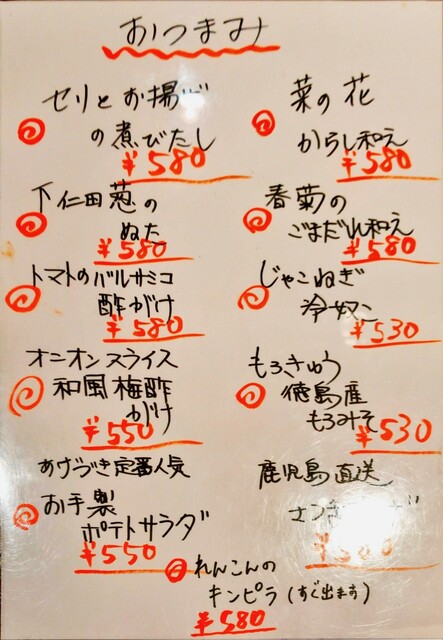 おつまみ
セリとお揚げ
の煮びたし
¥580
下仁田葱の
ぬた
¥580
トマトのバルサミコ
酢がけ
¥580
オニオンスライス
和風梅酢
がけ
¥550
あげづき定番人気
お手製
ポテトサラダ
¥550
菜の花
からし和え
¥580
春菊の
ごまだれ和え
¥580
じゃこねぎ
冷奴
¥530
もろきゅう
徳島産
もろみそ
¥530
鹿児島直送
さつま
れんこんの
キンピラ(すぐ出ます)
¥580